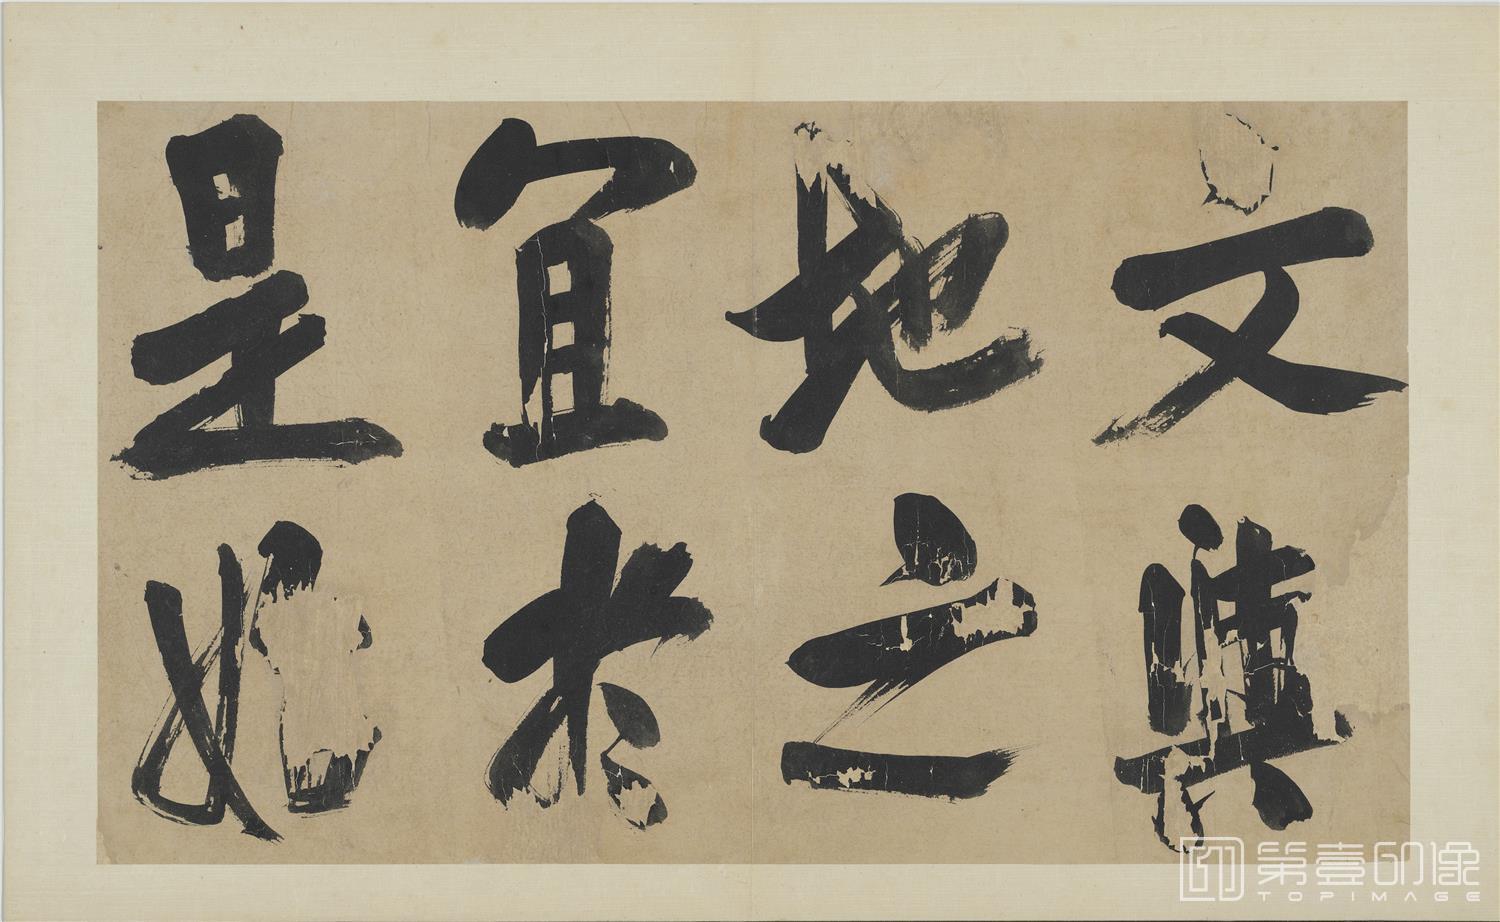 文與
地之
宜於
是始
第壹印像
TOPIMAGE